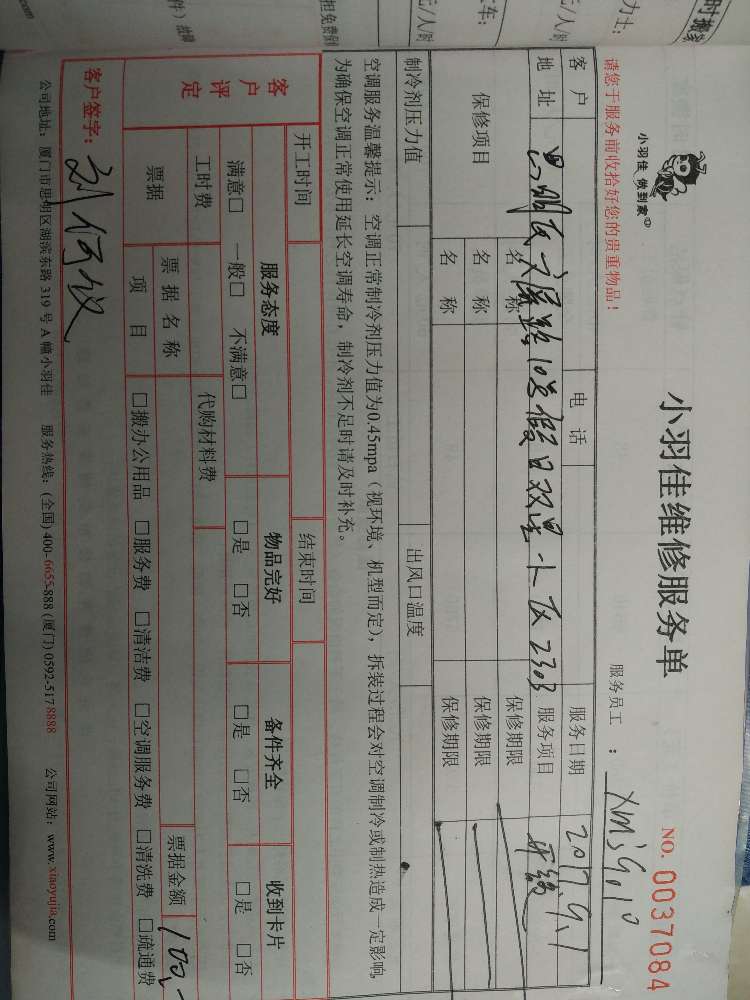 小羽佳 做到家
小羽佳维修服务单
NO. 0037084
请您于服务前收拾好您的贵重物品！
服务员工：
客 户
电 话
服务日期 2017.9.1
地 址 10号假日双星 2303 服务项目
保修项目
名 称 保修期限
名 称 保修期限
名 称 保修期限
制冷剂压力值
出风口温度
空调服务温馨提示：空调正常制冷剂压力值为0.45mpa（视环境、机型而定），拆装过程会对空调制冷或制热造成一定影响,
为确保空调正常使用延长空调寿命，制冷剂不足时请及时补充。
开工时间
结束时间
客户评定
服务态度 物品完好 备件齐全 收到卡片
满意□ 一般□ 不满意□ □是 □否 □是 □否 □是 □否
工时费
代购材料费
票据
票 据 名 称
票据金额 100.-
项 目 □搬办公用品 □服务费 □清洁费 □空调服务费 □清洗费 □疏通费
客户签字：
公司地址：厦门市思明区湖滨东路 319 号 A 幢小羽佳 服务热线：(全国) 400-6655-888 (厦门) 0592-5178888 公司网站：www.xiaoyujia.com